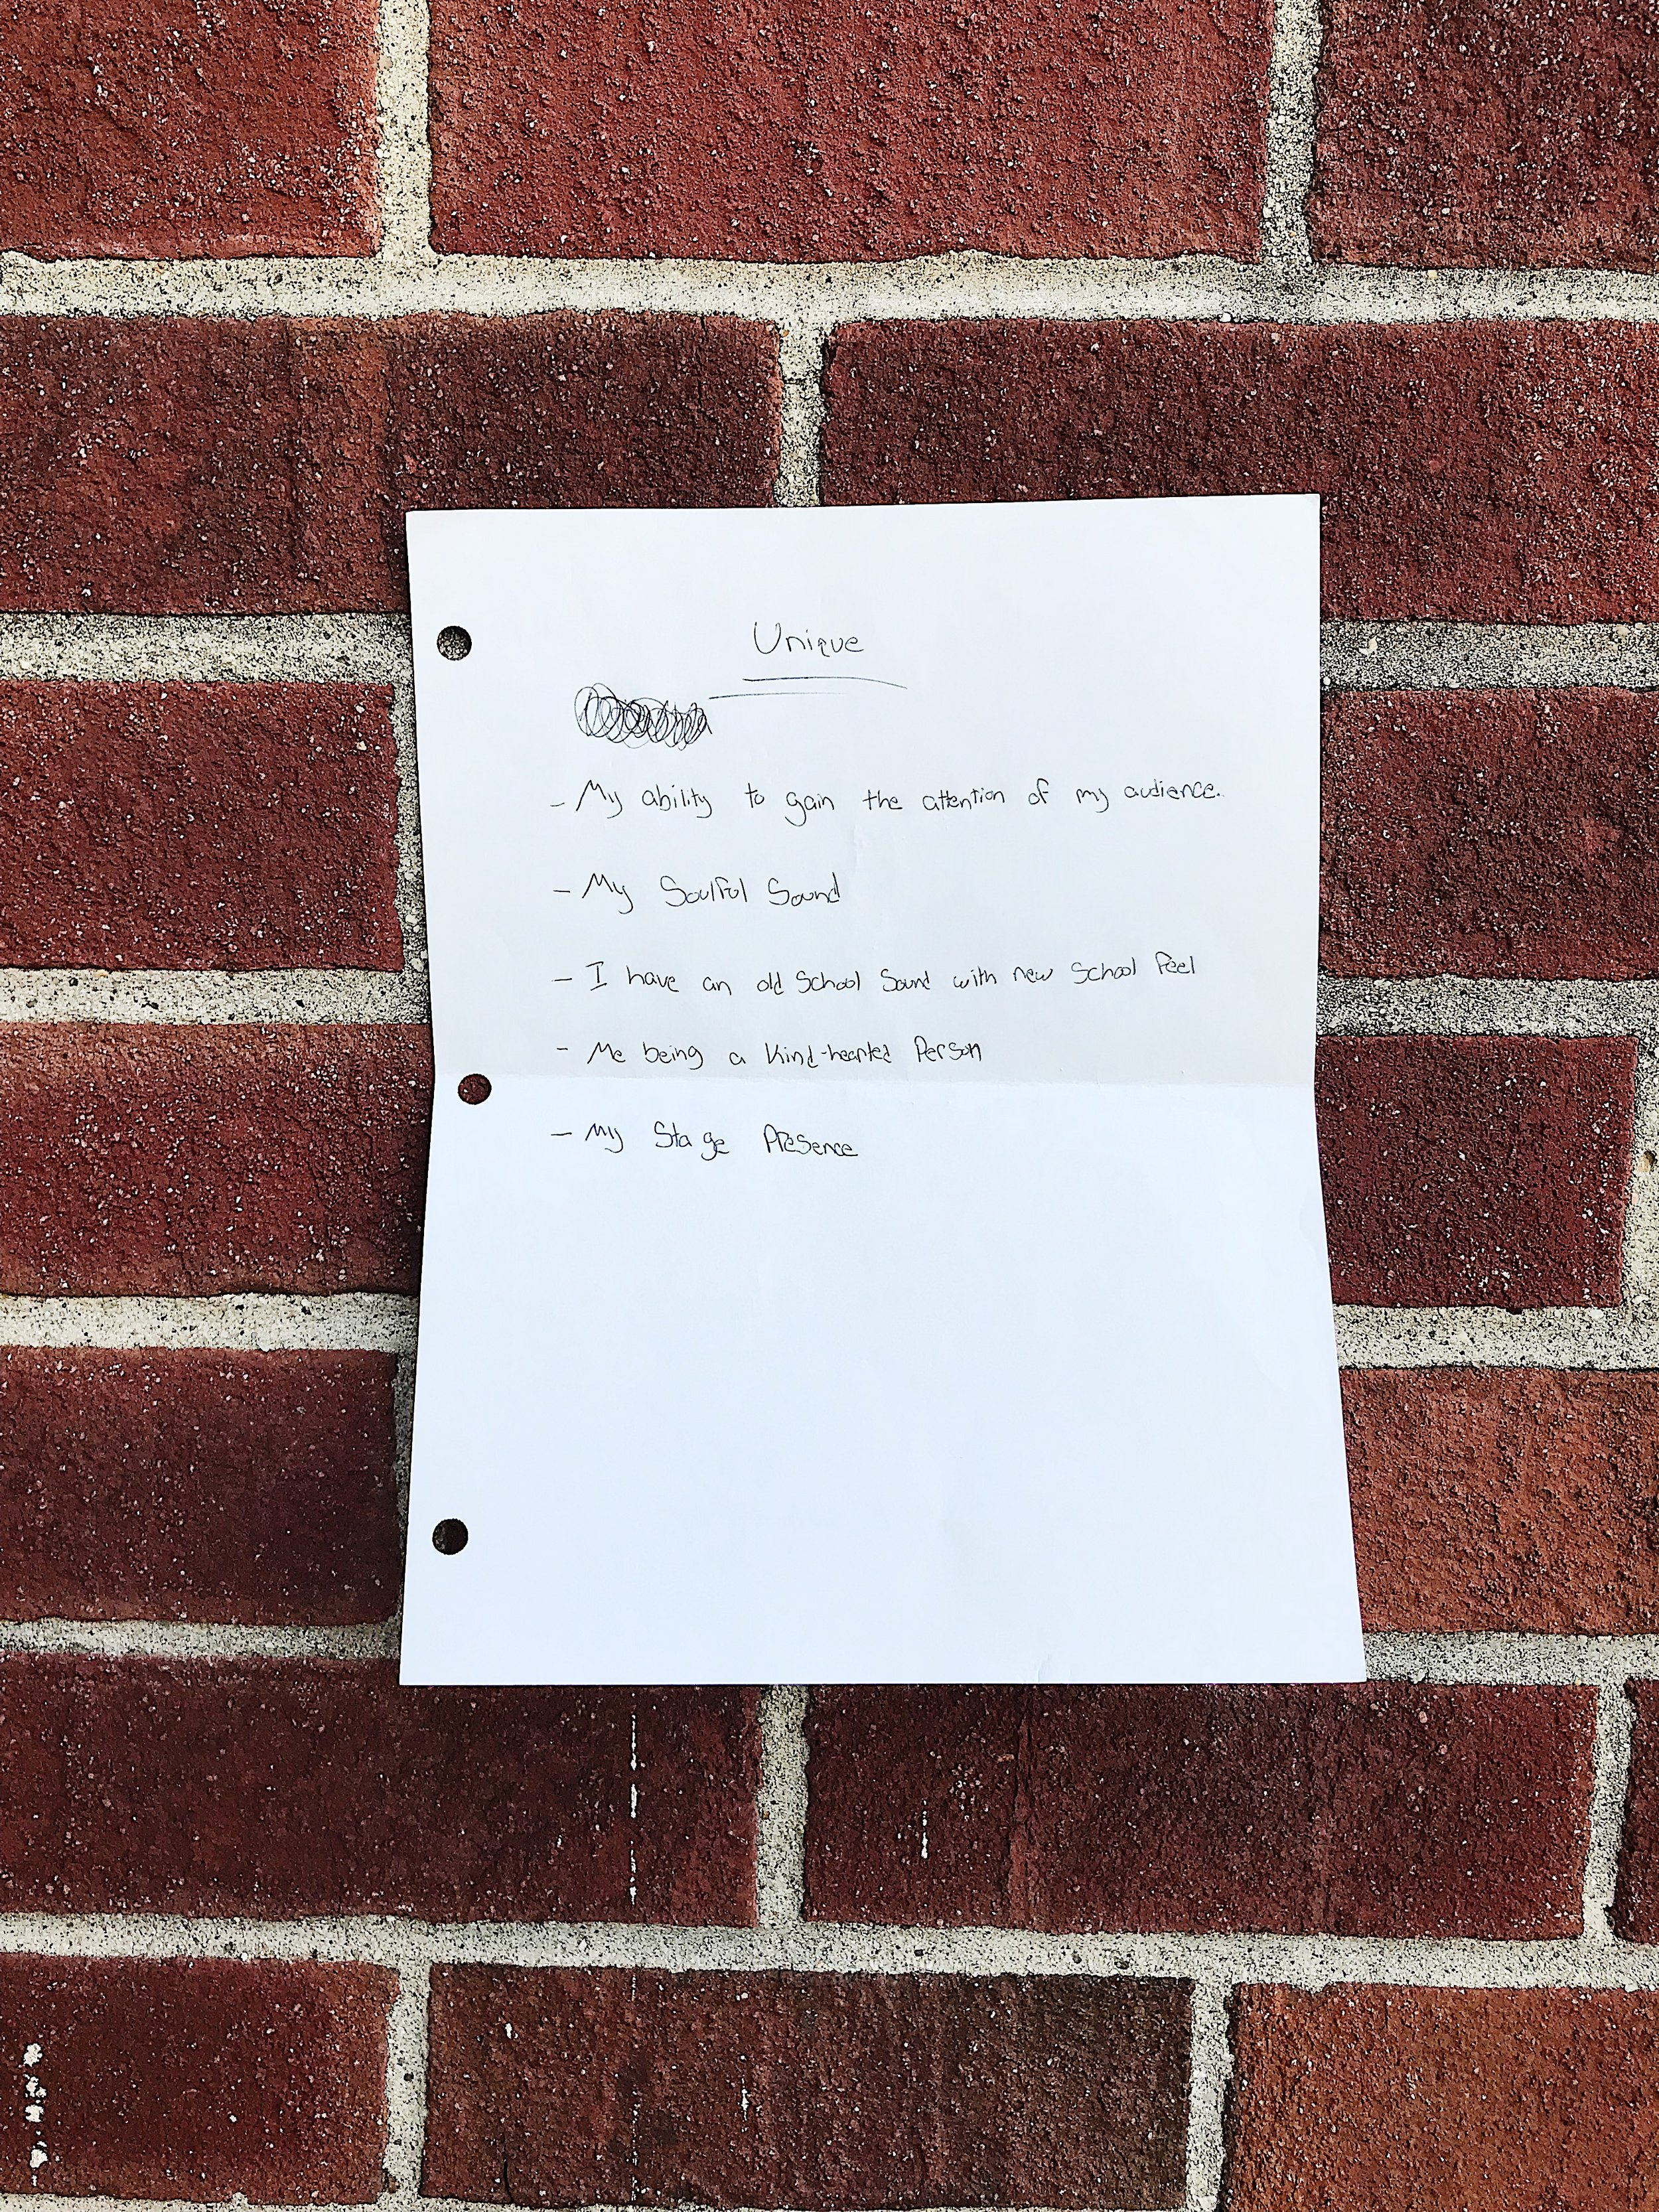 Unique
- My ability to gain the attention of my audience.
- My Soulful Sound
- I have an old School Sound with new School feel
- Me being a Kind-hearted Person
- My Stage Presence